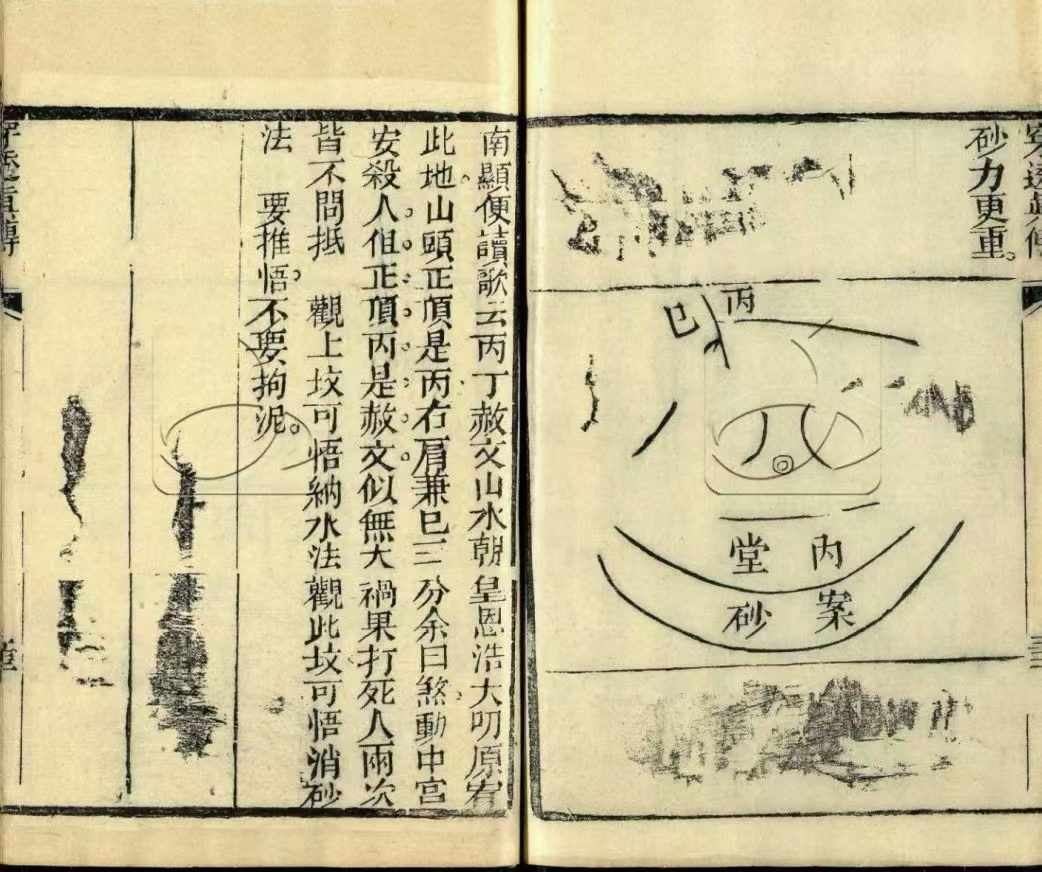 砂力更重。
丙
巳
內堂
案砂
南顯便讀歌云丙丁赦文山水朝皇恩浩大叨原宥
此地山頭正頂是丙右肩兼巳三分余曰煞動中宮
安殺人但正頂丙是赦文似無大禍果打死人兩次
皆不問抵 觀上坟可悟納水法觀此坟可悟消砂
法 要推悟。不要拘泥。